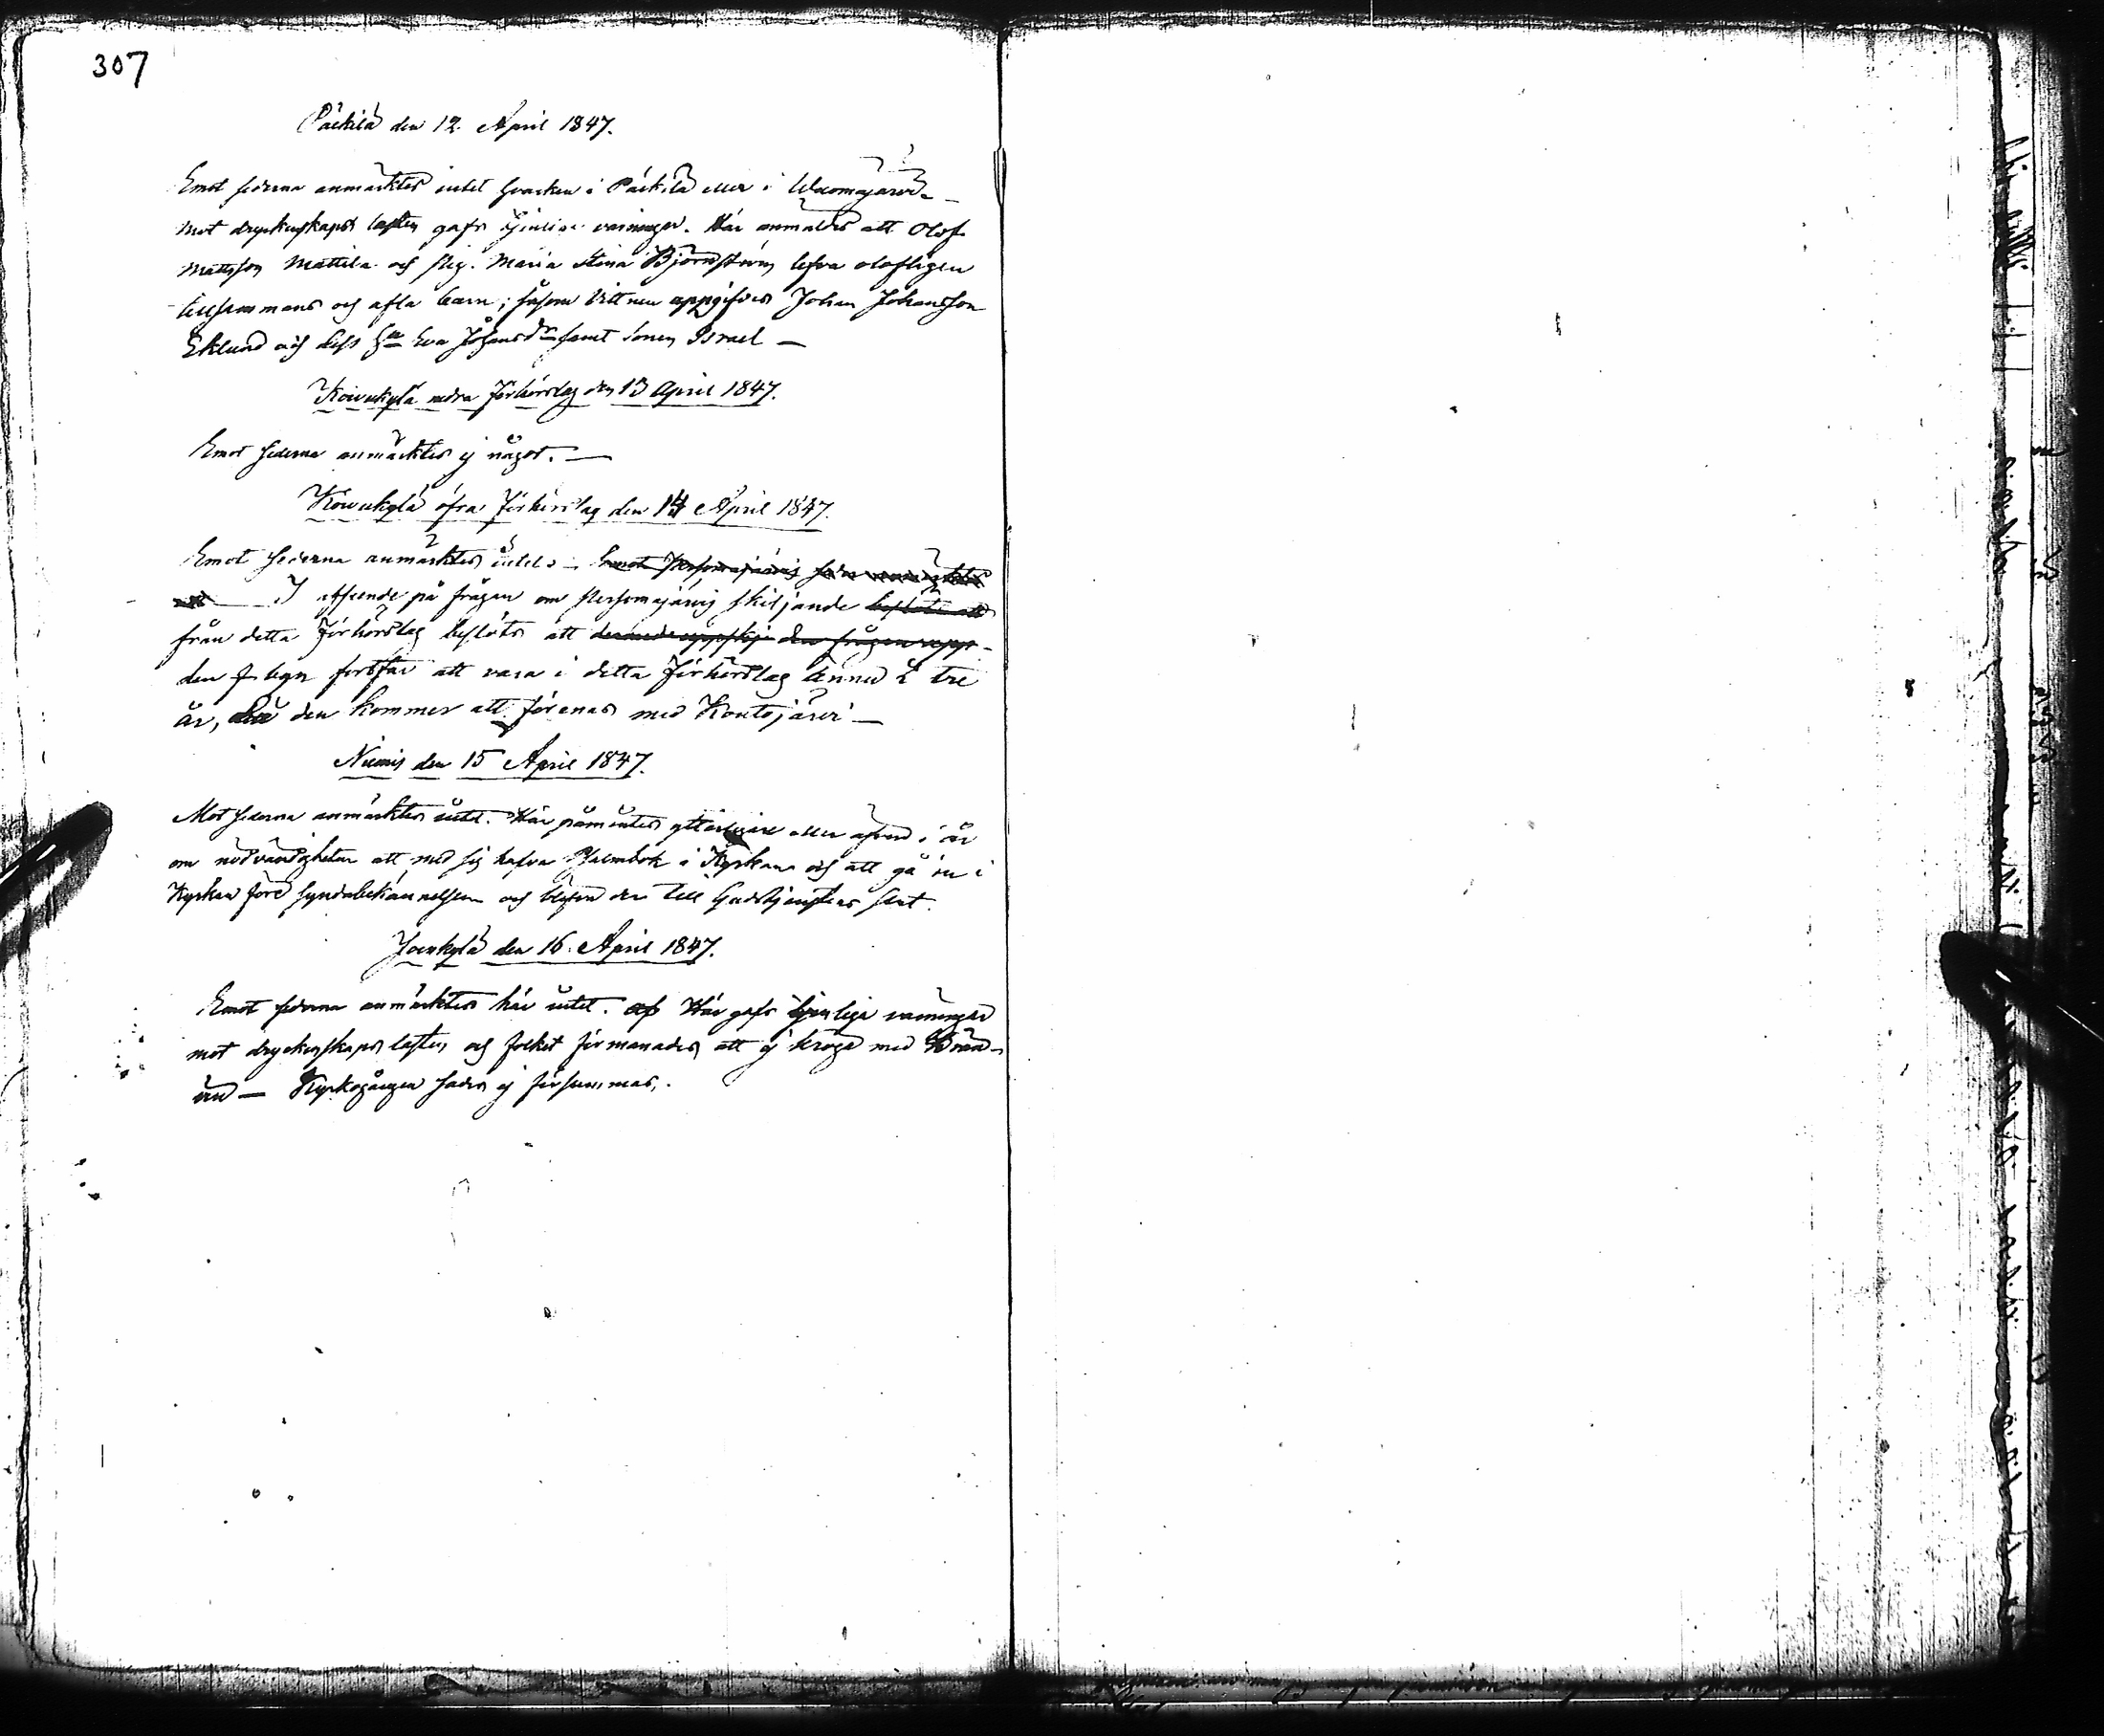 307
Päckilä den 12. April 1847.
Emot sederna anmärktes intet hvarken i Päckilä eller i Wuomajärvi.
Mot dryckenskaps lasten gafs tjenliga varningar. Här anmäldes att Olof
Mattsson Mattila och pig. Maria Stina Björnström lefva olofligen
tillsammans och afla barn; såsom vittnen uppgifves Johan Johansson
Eklund och dess hu Eva Johansdr samt sonen Israel —
Koivukylä nedra Förhörslag den 13 April 1847.
Emot sederna anmärktes ej något. —
Koivukylä öfra Förhörslag den 14 April 1847.
Emot sederna anmärktes intet. — Emot
I afseende på frågan om skiljande beslöts att
från detta Förhörslag beslöts att den frågan upp-
den f. byn fortfar att vara i detta Förhörslag ännu i tre
år, då den kommer att förenas med Kontojärvi —
Niemis den 15 April 1847.
Mot sederna anmärktes intet. Här påmintes ytterligare i år
om nödvändigheten att med sig hafva Psalmbok i Kyrkan och att gå in i
Kyrkan före syndabekännelsen och blifva der till Gudstjenstens slut.
Juoksylä den 16. April 1847.
Emot sederna anmärktes här intet. Här gafs tjenliga varningar
mot dryckenskaps lasten och folket förmanades att ej kröga med Brän-
vin — Kyrkogången hades ej försummas.